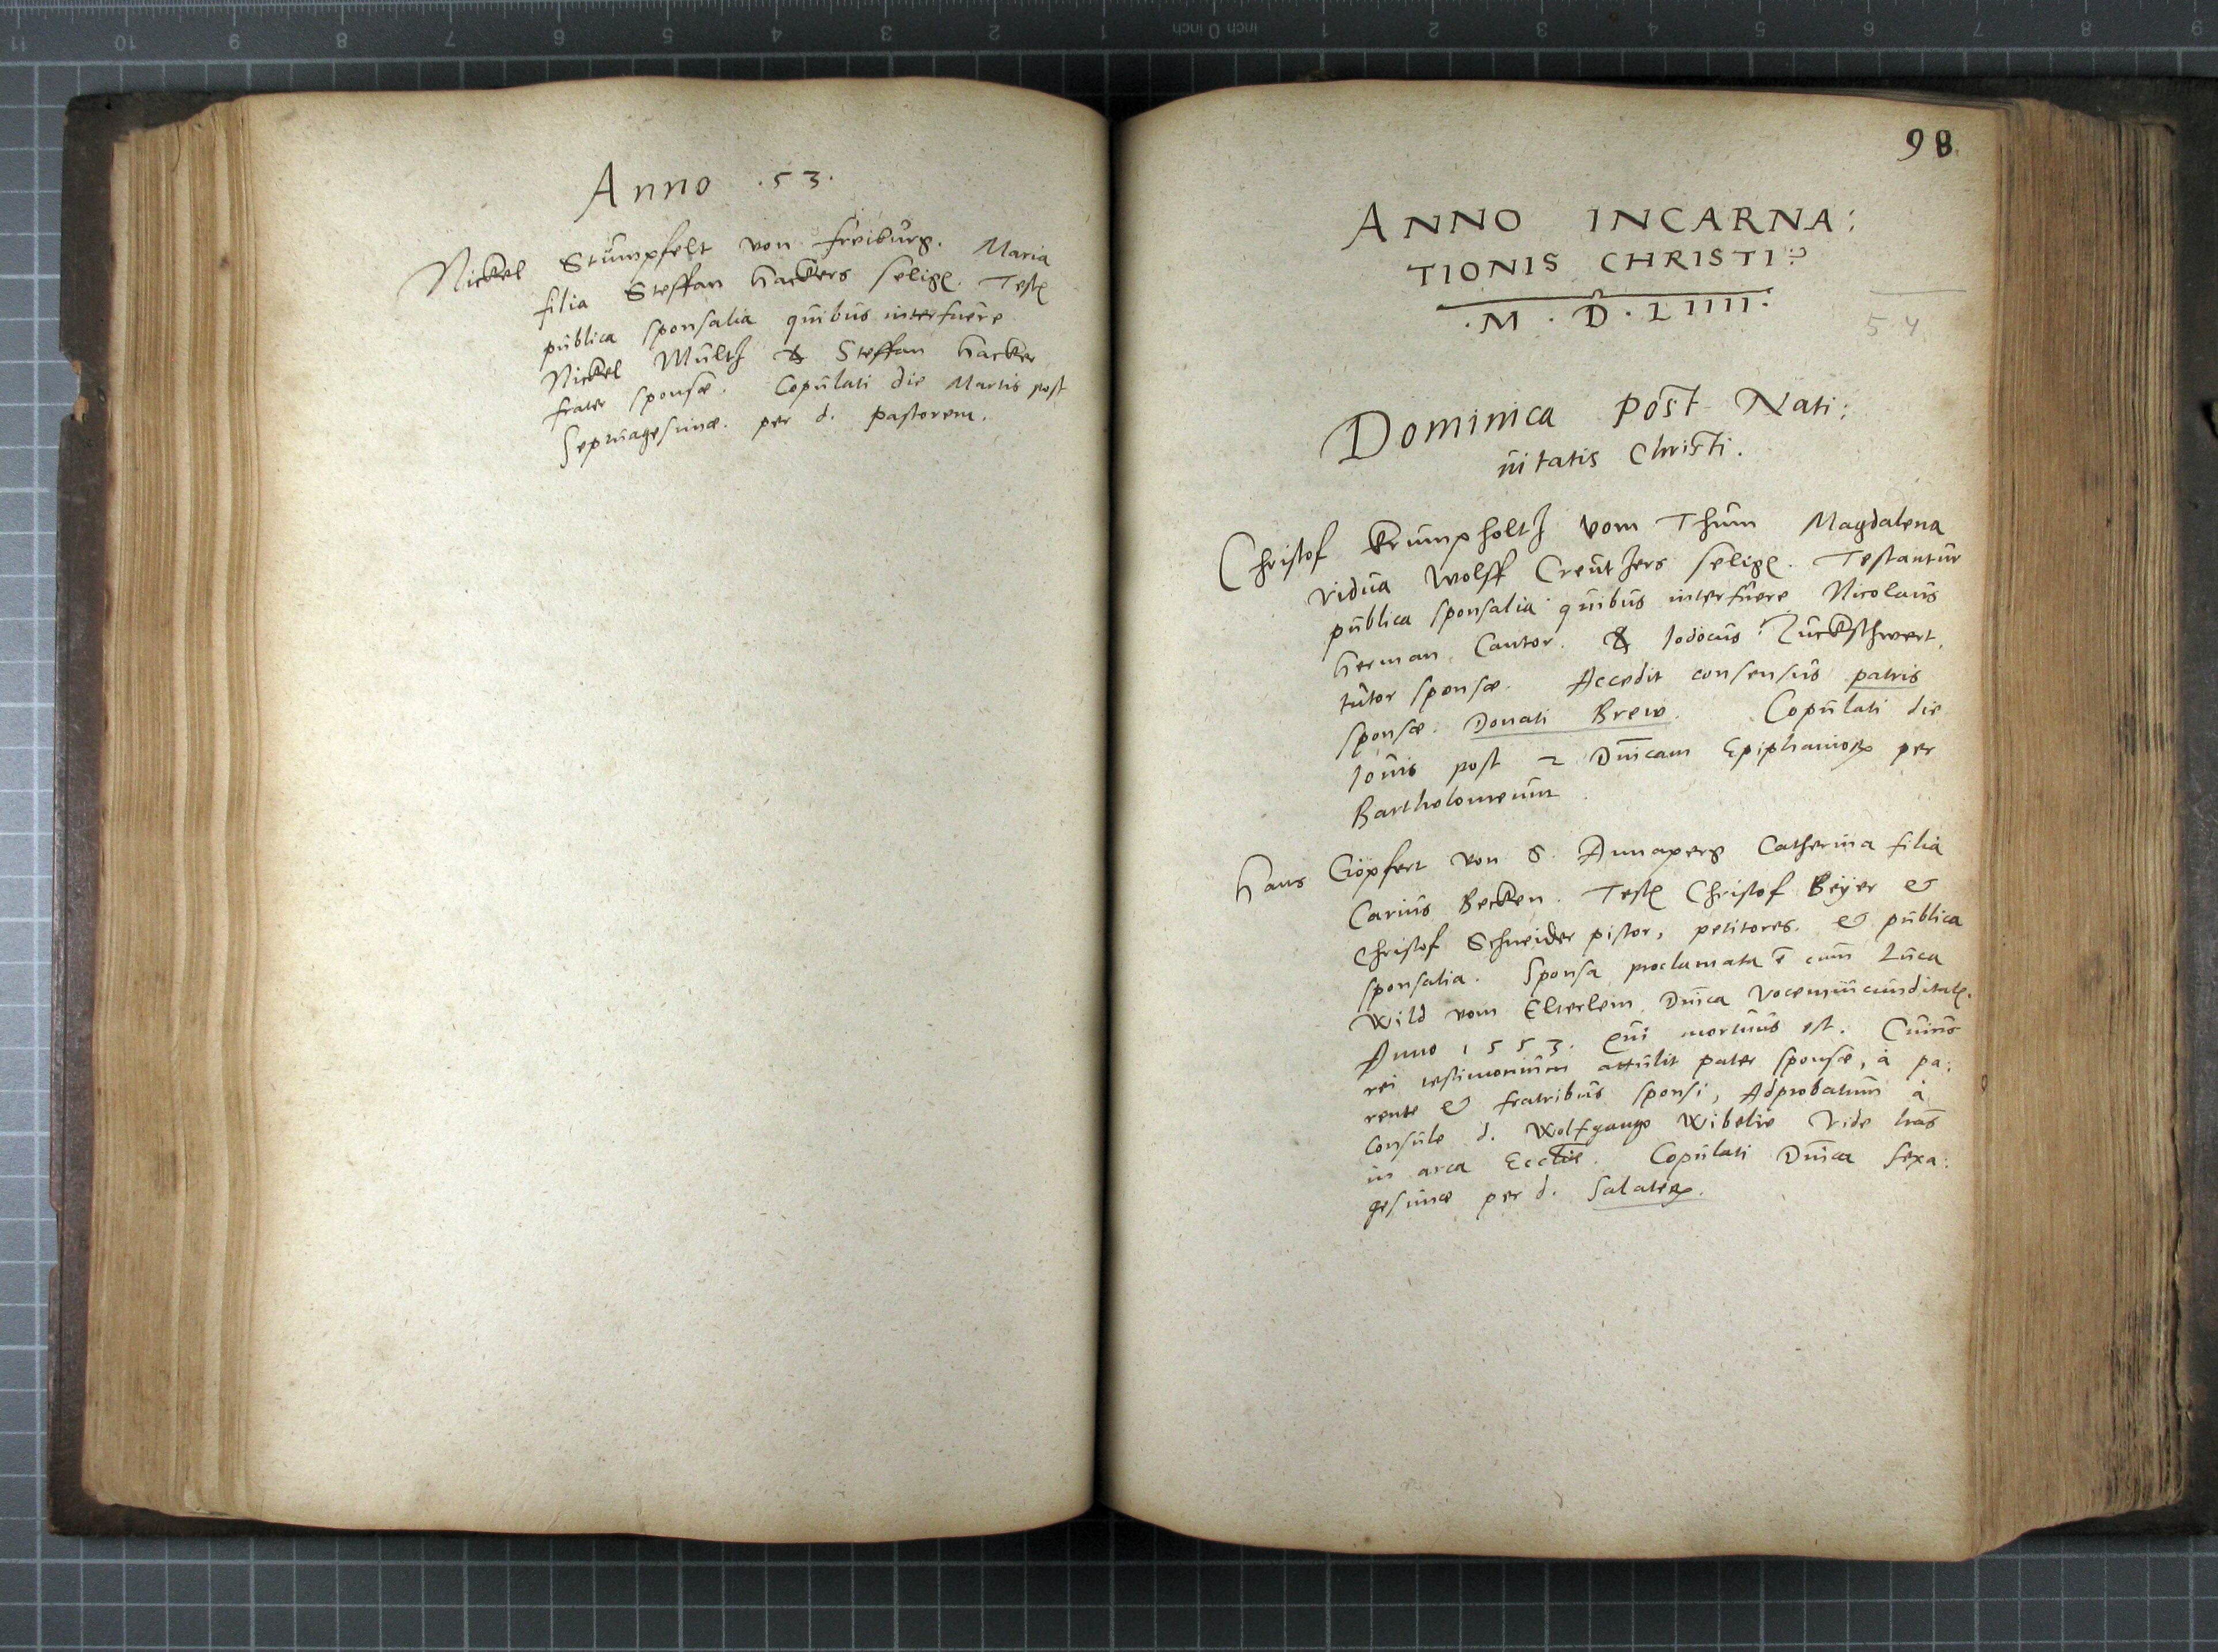 Anno .53.
Nickel Stümpfelt von freibürg. Maria
filia Steffan Hackers selig. Test
publica sponsalia quibus interfuere
Nickel Mültz & Steffan Hacker
frater sponsæ. Copulati die Martis post
Septuagesimæ. per d. pastorem.
98
ANNO INCARNA:
TIONIS CHRISTI
.M.D.LIIII.
54
Dominica Post Nati:
uitatis Christi.
Christof Krümpholtz vom Thum Magdalena
vidua Wolff Creützers selig. Testantur
publica sponsalia quibus interfuere Nicolaus
Herman Cantor. & Iodocus Zückschwert,
tutor sponsæ. Accedit consensus patris
sponsæ. Donati Brew. Copulati die
Iouis post 2 Dnicam Epiphaniorum per
Bartholomeum.
Hans Göpfert von S. Annaperg Catherina filia
Carius Becken. Test Christof Beÿer &
Christof Schneider pistor, petitores. & publica
sponsalia. Sponsa proclamata ē cum Luca
Wild vom Elterlein Dnica Vocem iucunditatis.
Anno 1553. Qui mortuus est. Cuius
rei testimonium attulit pater sponsæ, à pa:
rente & fratribus sponsi, Adprobatum à
Consule d. Wolfgango Wibelio Vide lras
in arca Ecclie. Copulati Dnica Sexa:
gesimæ per d. Salater.